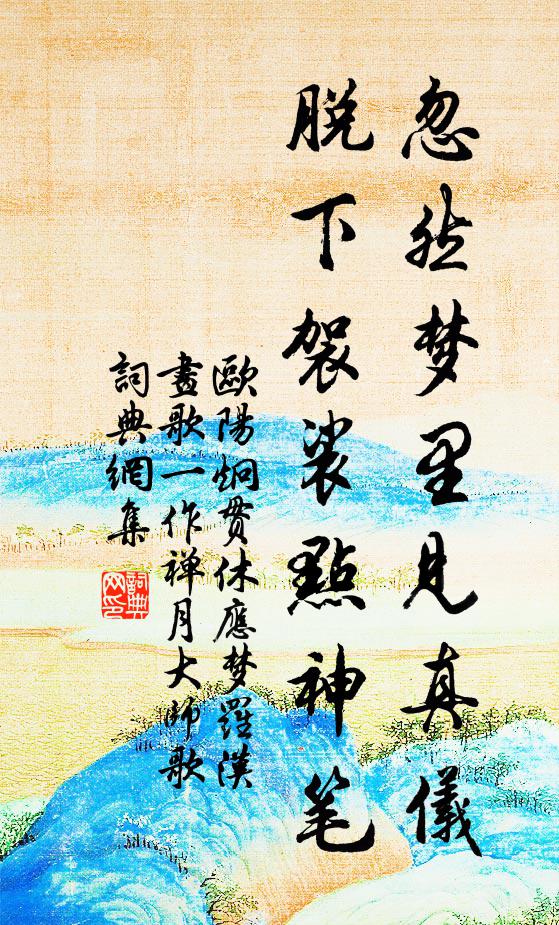 忽然梦里見真儀
脱下袈裟點神笔
歐陽炯贯休應梦羅漢
畫歌一作禅月大师歌
詞典網集
詞典网印